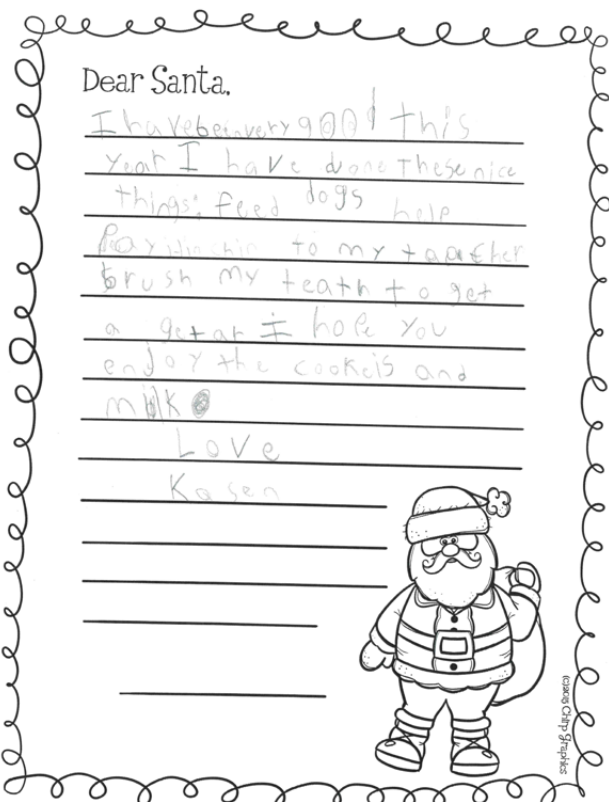 Dear Santa,
I have bein very good this
year I have done these nice
things: feed dogs help
Pay to my teacher
brush my teath to get
a getar I hope You
enjoy the cookeis and
milk
Love
Kasen
(c)2015 Chirp Graphics